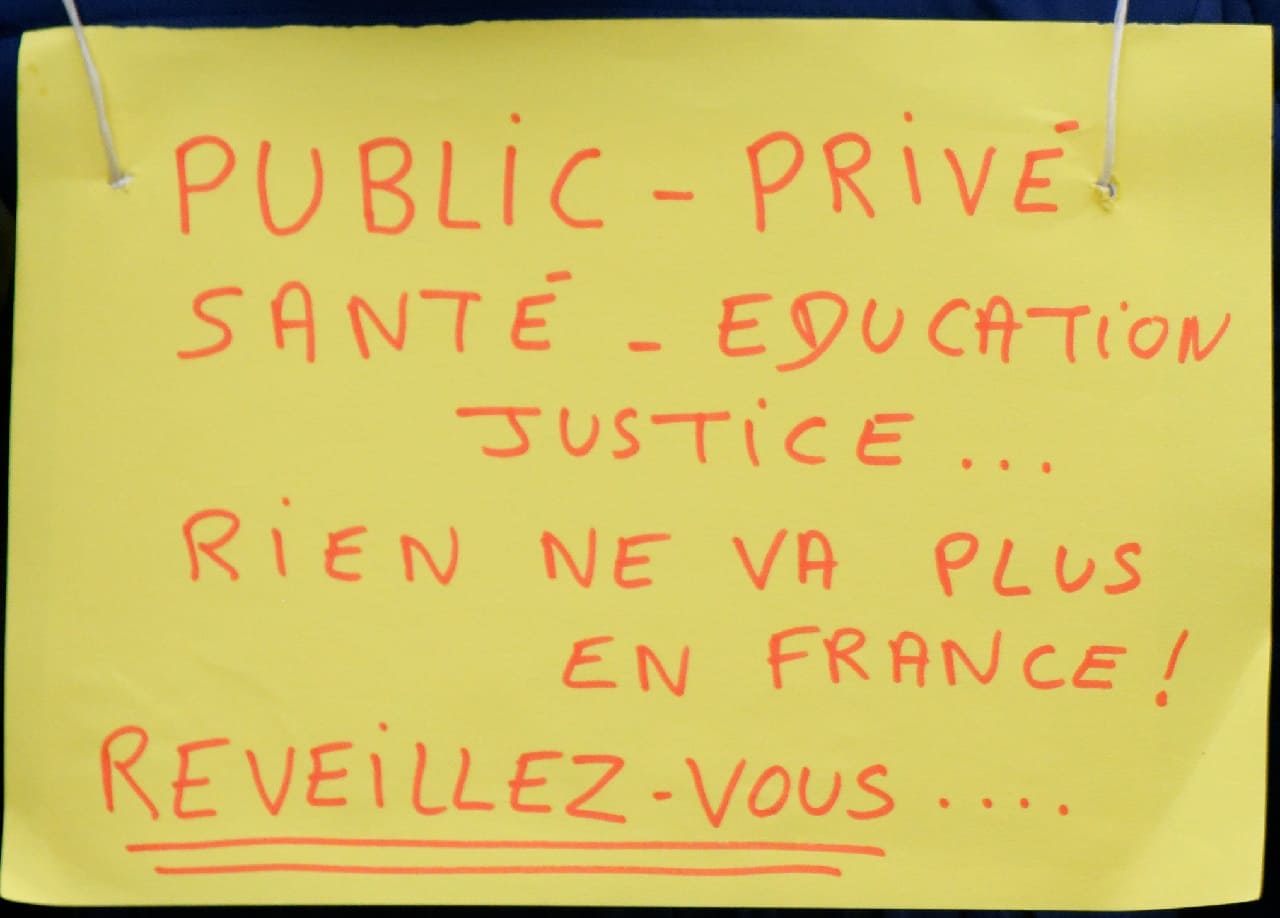 PUBLIC - PRIVÉ
SANTÉ - EDUCATION
JUSTICE ...
RIEN NE VA PLUS
EN FRANCE !
REVEILLEZ-VOUS ....